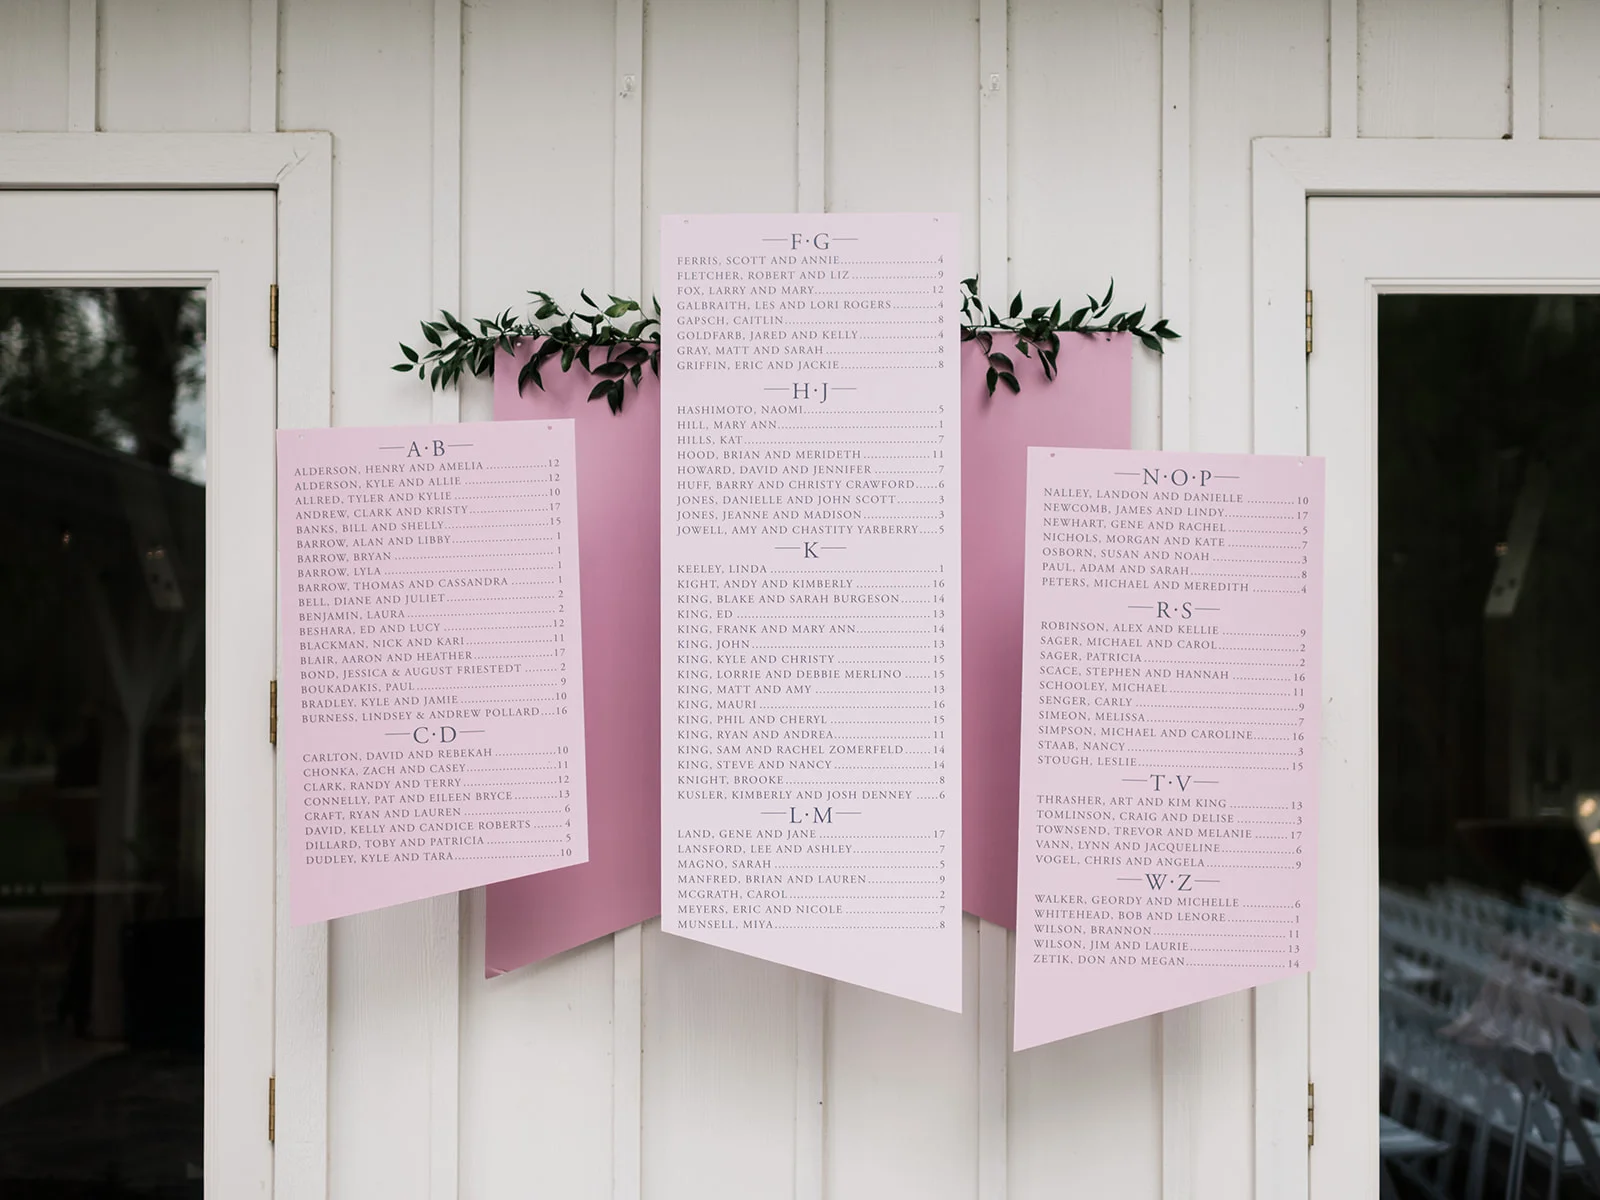 A·B
ALDERSON, HENRY AND AMELIA ................12
ALDERSON, KYLE AND ALLIE ................12
ALLRED, TYLER AND KYLIE ................10
ANDREW, CLARK AND KRISTY................17
BANKS, BILL AND SHELLY................15
BARROW, ALAN AND LIBBY................1
BARROW, BRYAN ................1
BARROW, LYLA ................1
BARROW, THOMAS AND CASSANDRA ...........1
BELL, DIANE AND JULIET................2
BENJAMIN, LAURA ................2
BESHARA, ED AND LUCY ................12
BLACKMAN, NICK AND KARI................11
BLAIR, AARON AND HEATHER................17
BOND, JESSICA & AUGUST FRIESTEDT .........2
BOUKADAKIS, PAUL................9
BRADLEY, KYLE AND JAMIE................10
BURNESS, LINDSEY & ANDREW POLLARD....16
C·D
CARLTON, DAVID AND REBEKAH ................10
CHONKA, ZACH AND CASEY................11
CLARK, RANDY AND TERRY ................12
CONNELLY, PAT AND EILEEN BRYCE............13
CRAFT, RYAN AND LAUREN ................6
DAVID, KELLY AND CANDICE ROBERTS ........4
DILLARD, TOBY AND PATRICIA ................5
DUDLEY, KYLE AND TARA................10
F·G
FERRIS, SCOTT AND ANNIE................4
FLETCHER, ROBERT AND LIZ ................9
FOX, LARRY AND MARY................12
GALBRAITH, LES AND LORI ROGERS............4
GAPSCH, CAITLIN................8
GOLDFARB, JARED AND KELLY................4
GRAY, MATT AND SARAH ................8
GRIFFIN, ERIC AND JACKIE................8
H·J
HASHIMOTO, NAOMI................5
HILL, MARY ANN................1
HILLS, KAT................7
HOOD, BRIAN AND MERIDETH ................11
HOWARD, DAVID AND JENNIFER ................7
HUFF, BARRY AND CHRISTY CRAWFORD......6
JONES, DANIELLE AND JOHN SCOTT...........3
JONES, JEANNE AND MADISON ................3
JOWELL, AMY AND CHASTITY YARBERRY.....5
K
KEELEY, LINDA ................1
KIGHT, ANDY AND KIMBERLY ................16
KING, BLAKE AND SARAH BURGESON........14
KING, ED ................13
KING, FRANK AND MARY ANN................14
KING, JOHN................13
KING, KYLE AND CHRISTY ................15
KING, LORRIE AND DEBBIE MERLINO ........15
KING, MATT AND AMY ................13
KING, MAURI ................16
KING, PHIL AND CHERYL ................15
KING, RYAN AND ANDREA................11
KING, SAM AND RACHEL ZOMERFELD.......14
KING, STEVE AND NANCY ................14
KNIGHT, BROOKE................8
KUSLER, KIMBERLY AND JOSH DENNEY ......6
L·M
LAND, GENE AND JANE ................17
LANSFORD, LEE AND ASHLEY................7
MAGNO, SARAH ................5
MANFRED, BRIAN AND LAUREN................9
MCGRATH, CAROL................2
MEYERS, ERIC AND NICOLE ................7
MUNSELL, MIYA................8
N·O·P
NALLEY, LANDON AND DANIELLE ............10
NEWCOMB, JAMES AND LINDY................17
NEWHART, GENE AND RACHEL................5
NICHOLS, MORGAN AND KATE ................7
OSBORN, SUSAN AND NOAH ................3
PAUL, ADAM AND SARAH................8
PETERS, MICHAEL AND MEREDITH ............4
R·S
ROBINSON, ALEX AND KELLIE ................9
SAGER, MICHAEL AND CAROL................2
SAGER, PATRICIA ................2
SCACE, STEPHEN AND HANNAH ................16
SCHOOLEY, MICHAEL ................11
SENGER, CARLY ................9
SIMEON, MELISSA................7
SIMPSON, MICHAEL AND CAROLINE...........16
STAAB, NANCY................3
STOUGH, LESLIE................15
T·V
THRASHER, ART AND KIM KING ................13
TOMLINSON, CRAIG AND DELISE ................3
TOWNSEND, TREVOR AND MELANIE ..........17
VANN, LYNN AND JACQUELINE................6
VOGEL, CHRIS AND ANGELA................9
W·Z
WALKER, GEORDY AND MICHELLE ............6
WHITEHEAD, BOB AND LENORE................1
WILSON, BRANNON................11
WILSON, JIM AND LAURIE................13
ZETIK, DON AND MEGAN................14